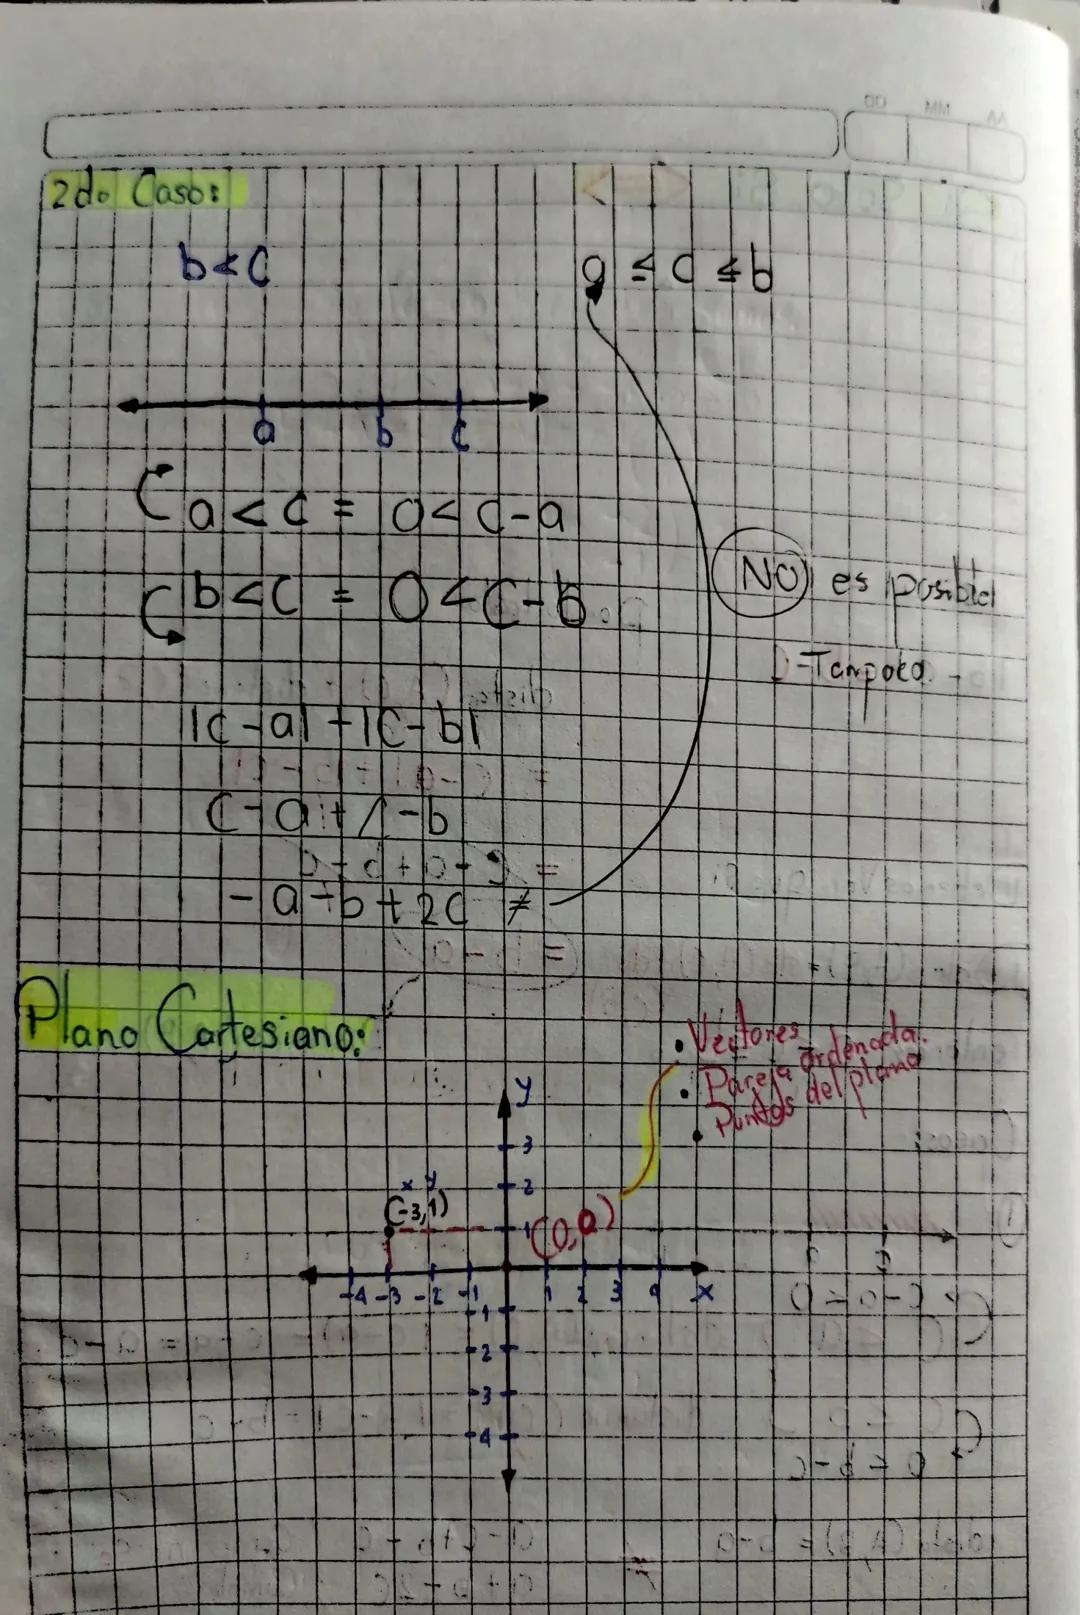 2do Caso:
b < c
a ≤ c ≤ b
a b c
a < c = 0 < c - a
b < c = 0 < c - b
NO es posible
- Tampoco.
|c - a| + |c - b|
c - a + c - b
- a - b + 2c ≠
Plano Cartesiano:
• Vectores
• Pareja ordenada.
• Puntos del plano
y
3
x y
2
(-3,1)
1
(0,0)
-4 -3 -2 -1 1 2 3 4 x
-1
-2
-3
-4